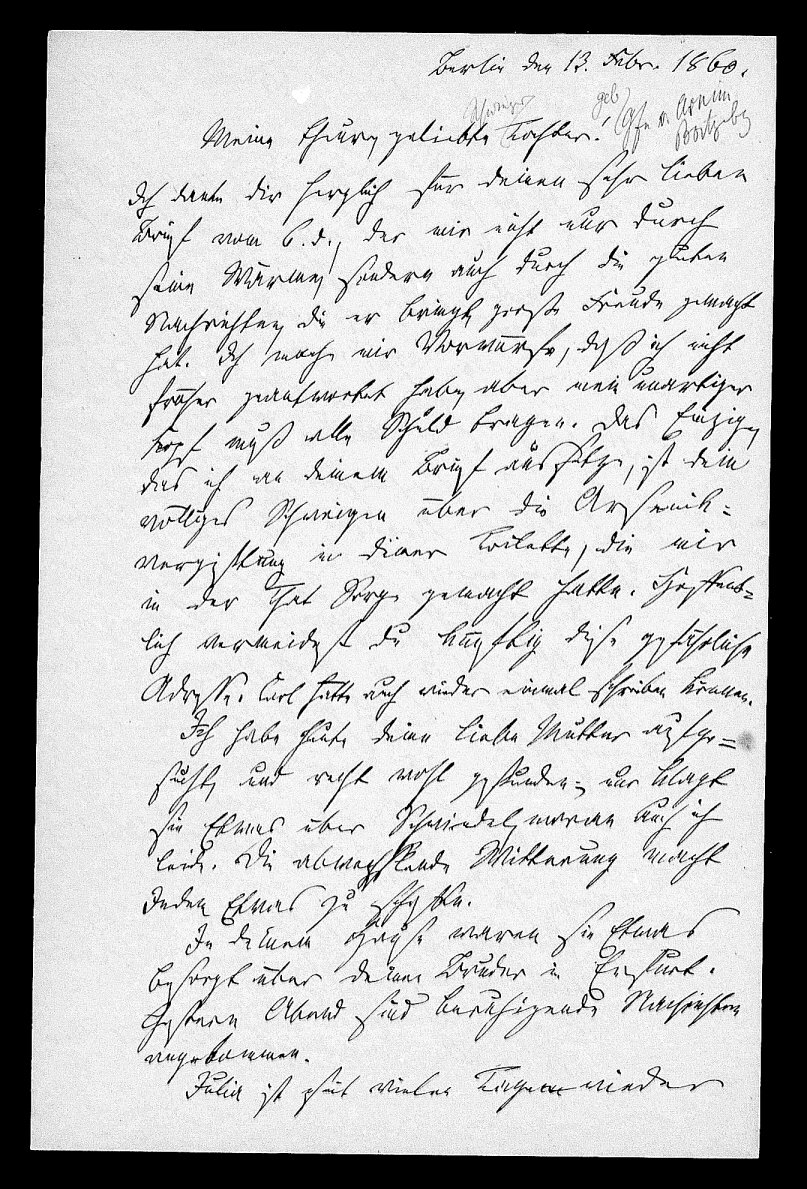 Berlin den 13. Febr. 1860.
Schwieger geb Gfn v Arnim
Boitzebg
Meine theure geliebte Tochter!
Ich danke dir herzlich für deinen sehr lieben
Brief vom 6. d., der mir nicht nur durch
seine Wärme, sondern auch durch die guten
Nachrichten, die er bringt, große Freude gemacht
hat. Ich mache mir Vorwürfe, daß ich nicht
früher geantwortet habe, aber mein unartiger
Kopf muß alle Schuld tragen. Das Einzige,
das ich an deinem Brief aussetze, ist dein
völliges Schweigen über die Arsenik=
vergiftung in deiner Toilette, die mir
in der That Sorge gemacht hatte. Hoffent=
lich vermeidest du künftig diese gefährliche
Adresse. Carl hatte auch wieder einmal schreiben können.
Ich habe heute deine liebe Mutter aufge=
sucht, und recht wohl gefunden; nur klagt
sie Etwas über Schwindel, woran auch ich
leide. Die abwechselnde Witterung macht
Jedem Etwas zu schaffen.
In deinem Hause waren sie Etwas
besorgt über deinen Bruder in Erfurt.
Gestern Abend sind beruhigende Nachrichten
angekommen.
Julia ist seit vielen Tagen wieder